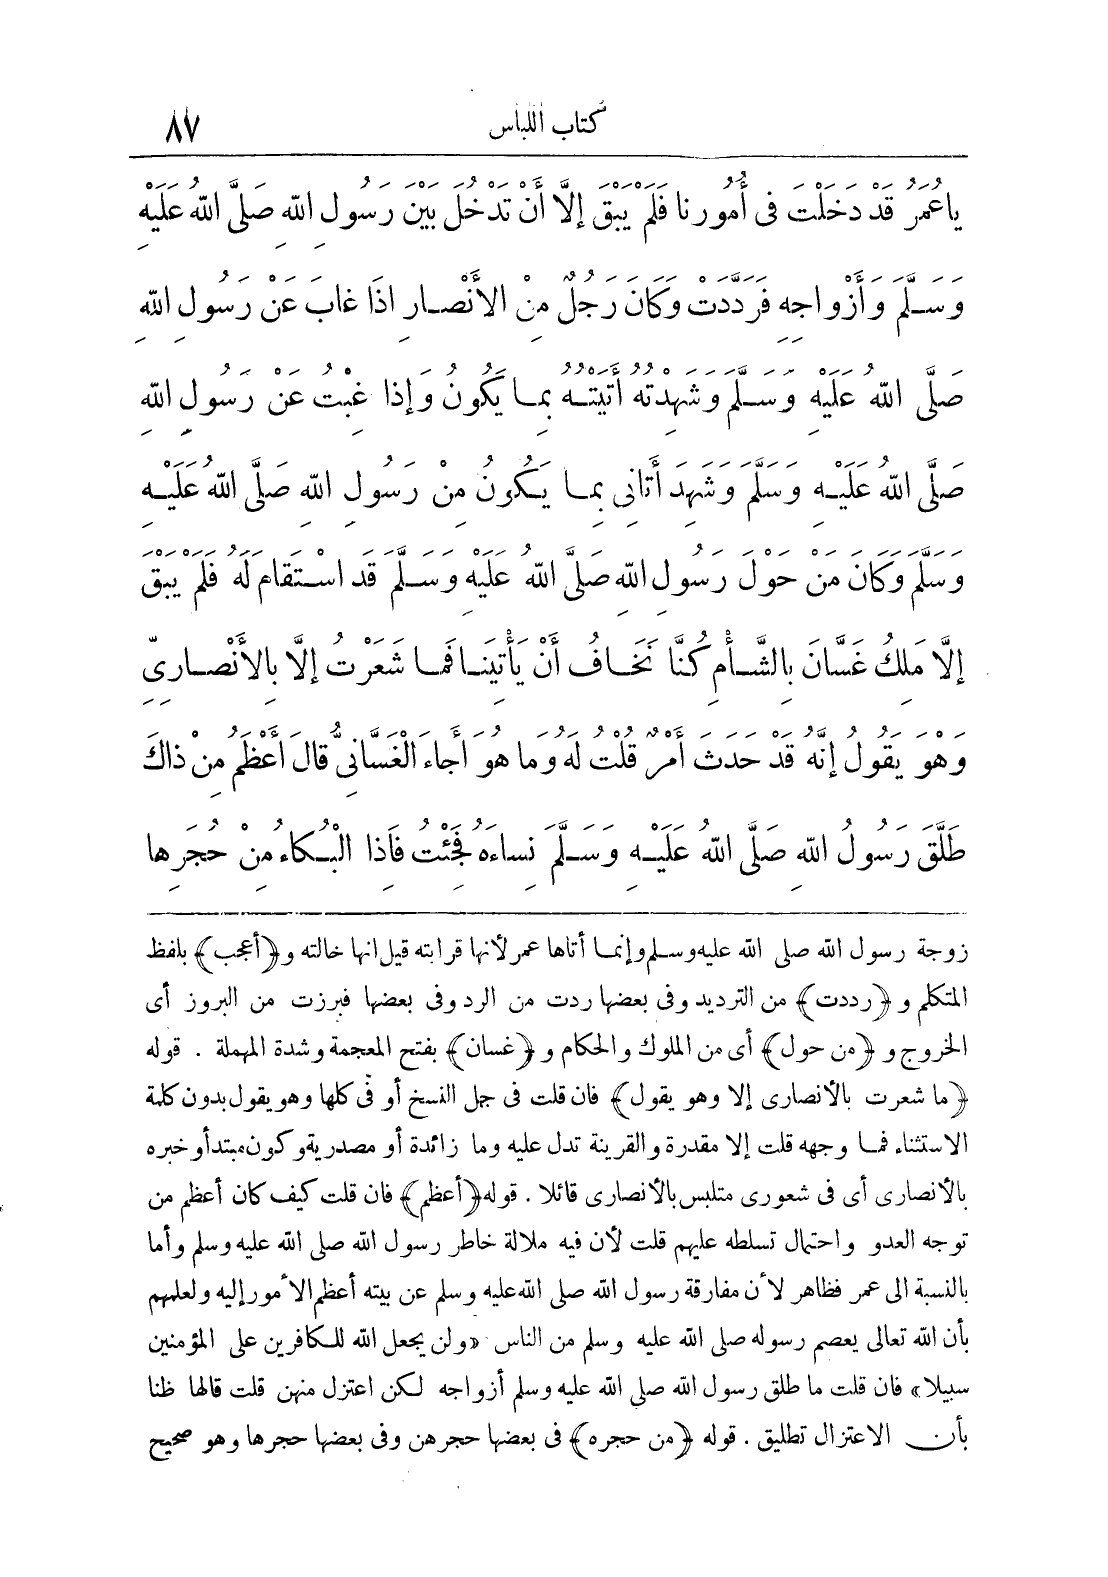 كتاب اللباس ٨٧
يا عُمَرُ قَدْ دَخَلْتَ فى أُمُورِنا فَلَمْ يَبْقَ إلَّا أَنْ تَدْخُلَ بَيْنَ رَسُولِ اللهِ صَلَّى اللهُ عَلَيْهِ
وَسَلَّمَ وَأَزْواجِهِ فَرَدَّدَتْ وَكَانَ رَجُلٌ مِنْ الأَنْصارِ اذَا غابَ عَنْ رَسُولِ اللهِ
صَلَّى اللهُ عَلَيْهِ وَسَلَّمَ وَشَهِدْتُهُ أَتَيْتُهُ بِمَا يَكُونُ وَإِذا غِبْتُ عَنْ رَسُولِ اللهِ
صَلَّى اللهُ عَلَيْهِ وَسَلَّمَ وَشَهِدَ أَتَانِى بِمَا يَكُونُ مِنْ رَسُولِ اللهِ صَلَّى اللهُ عَلَيْهِ
وَسَلَّمَ وَكَانَ مَنْ حَوْلَ رَسُولِ اللهِ صَلَّى اللهُ عَلَيْهِ وَسَلَّمَ قَد اسْتَقامَ لَهُ فَلَمْ يَبْقَ
إِلَّا مَلِكُ غَسَّانَ بِالشَّأْمِ كُنَّا نَخَافُ أَنْ يَأْتِيَنَا فَمَا شَعَرْتُ إِلَّا بِالأَنْصارِىِّ
وَهْوَ يَقُولُ إِنَّهُ قَدْ حَدَثَ أَمْرٌ قُلْتُ لَهُ وَما هُوَ أَجاءَ الْغَسَّانِىُّ قَالَ أَعْظَمُ مِنْ ذاكَ
طَلَّقَ رَسُولُ اللهِ صَلَّى اللهُ عَلَيْهِ وَسَلَّمَ نِساءَهُ فَجِئْتُ فَاذا الْبُكاءُ مِنْ حُجَرِها
زوجة رسول الله صلى الله عليه وسلم وإنما أتاها عمر لأنها قرابته قيل انها خالته و﴿أعجب﴾ بلفظ
المتكلم و﴿رددت﴾ من الترديد وفى بعضها ردت من الرد وفى بعضها فبرزت من البروز أى
الخروج و﴿من حول﴾ أى من الملوك والحكام و﴿غسان﴾ بفتح المعجمة وشدة المهملة . قوله
﴿ما شعرت بالأنصارى إلا وهو يقول﴾ فان قلت فى جل النسخ أو فى كلها وهو يقول بدون كلمة
الاستثناء فما وجهه قلت إلا مقدرة والقرينة تدل عليه وما زائدة أو مصدرية وكون مبتدأ وخبره
بالأنصارى أى فى شعورى متلبس بالأنصارى قائلا . قوله ﴿أعظم﴾ فان قلت كيف كان أعظم من
توجه العدو واحتمال تسلطه عليهم قلت لأن فيه ملالة خاطر رسول الله صلى الله عليه وسلم وأما
بالنسبة الى عمر فظاهر لأن مفارقة رسول الله صلى الله عليه وسلم عن بيته أعظم الأمور إليه ولعلمهم
بأن الله تعالى يعصم رسوله صلى الله عليه وسلم من الناس «ولن يجعل الله للكافرين على المؤمنين
سبيلا» فان قلت ما طلق رسول الله صلى الله عليه وسلم أزواجه لكن اعتزل منهن قلت قالها ظنا
بأن الاعتزال تطليق . قوله ﴿من حجره﴾ فى بعضها حجرهن وفى بعضها حجرها وهو صحيح